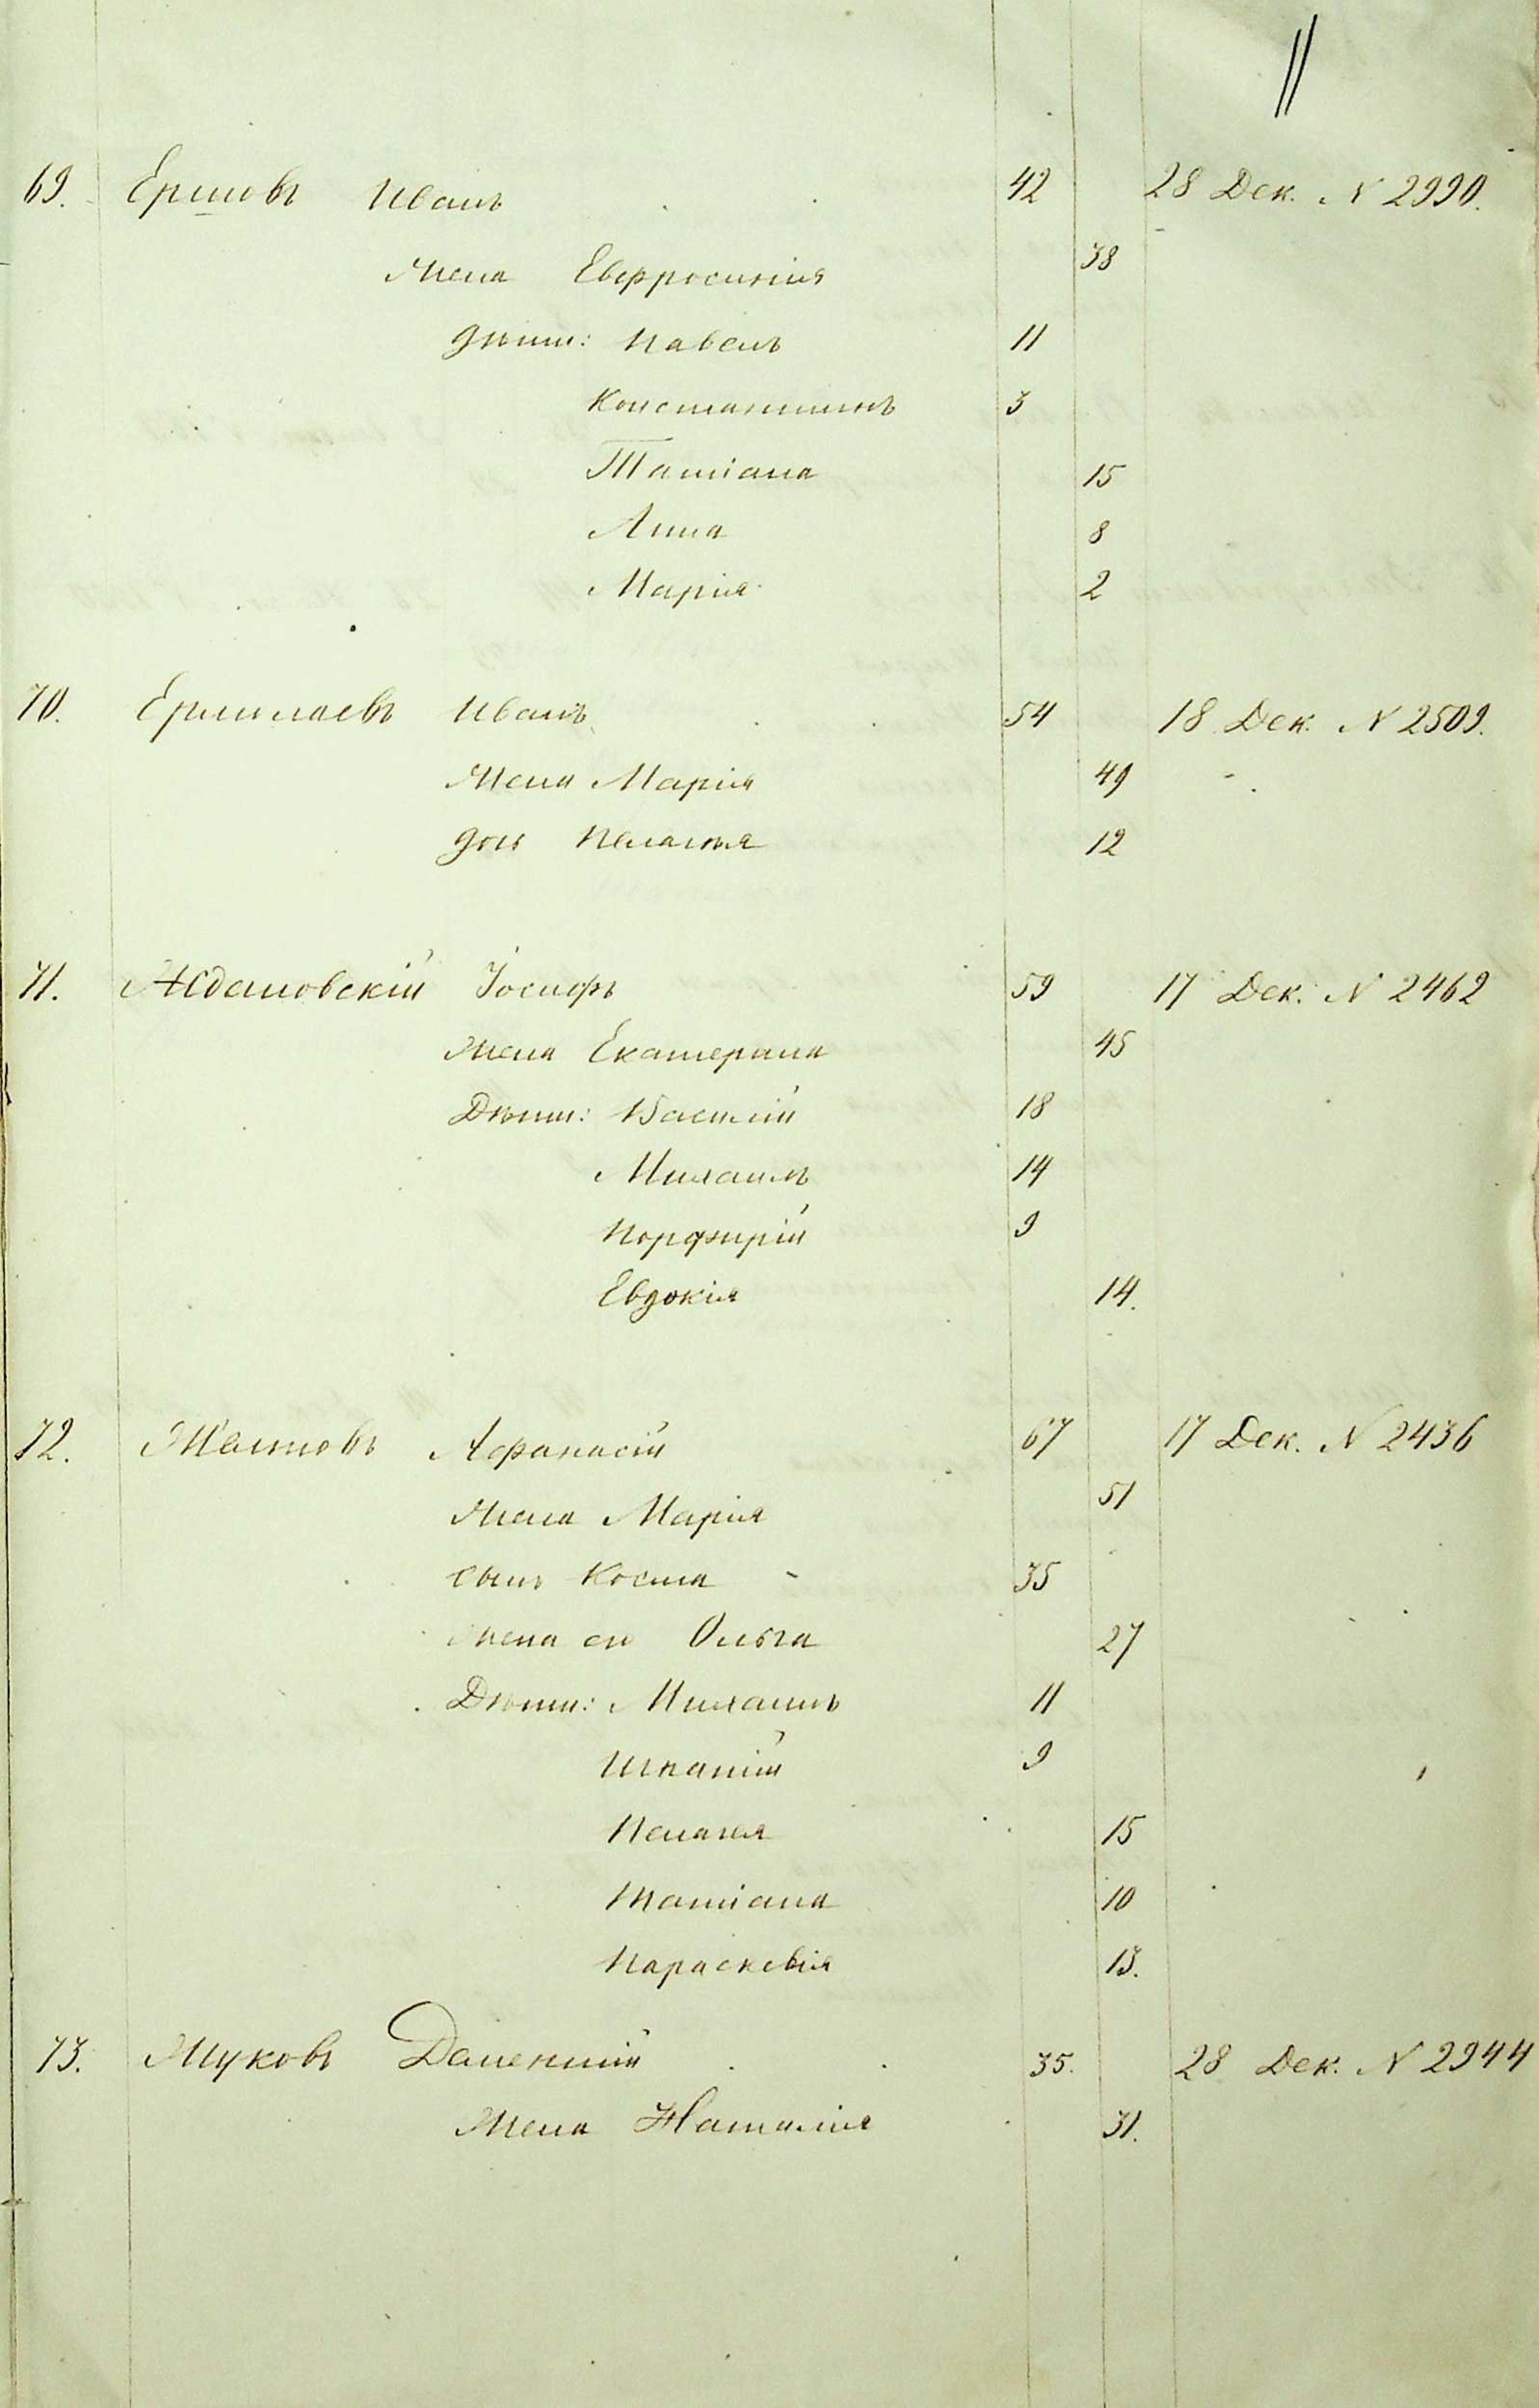 11
69. Ершовъ Иванъ 42 28 Дек. N 2990.
Жена Евфросинія 38
дѣти: Павелъ 11
Константинъ 3
Татіана 15
Анна 8
Марія 2
70. Ермолаевъ Иванъ 54 18 Дек. N 2509.
Жена Марія 49
дочь Пелагѣя 12
71. Ждановскій Іосифъ 59 17 Дек. N 2462
Жена Екатерина 45
Дѣти: Василій 18
Михаилъ 14
Порфирій 9
Евдокія 14.
72. Афанасій 67 17 Дек. N 2436
Жена Марія 51
сынъ Косма 35
Жена его Ольга 27
Дѣти: Михаилъ 11
Игнатій 9
Пелагея 15
Татіана 10
Параскевія 13.
73. Жуковъ 35. 28 Дек. N 2944
Жена Наталія 31.